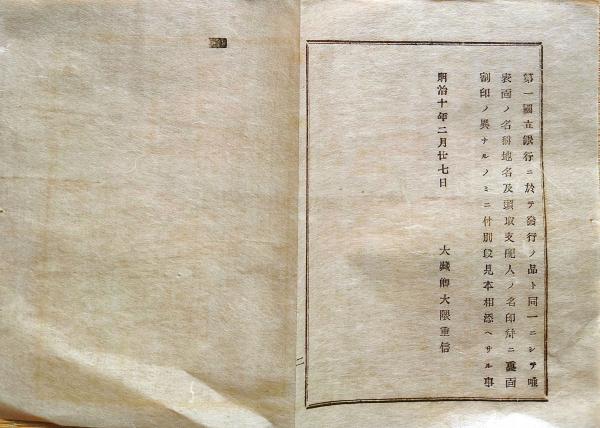 第一國立銀行ニ於テ發行ノ品ト同一ニシテ唯
表面ノ名稱地名及頭取支配人ノ名印幷ニ裏面
割印ノ異ナルノミニ付別段見本相添ヘサル事
明治十年二月廿七日
大藏卿大隈重信
二